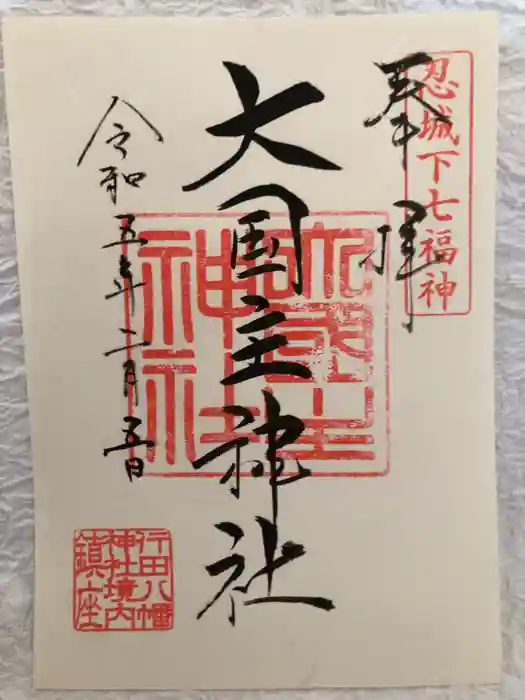 忍城下七福神
奉拝
大国主神社
大國主
神社
令和五年二月五日
行田八幡
神社境内
鎮座